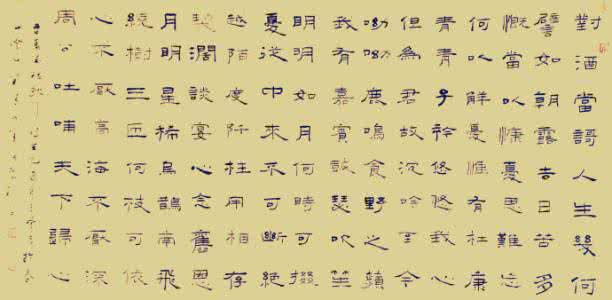 對酒當謌人生幾何
譬如朝露去日苦多
慨當以慷憂思難忘
何以解憂惟有杜康
青青子衿悠悠我心
但為君故沉吟至今
呦呦鹿鳴食野之蘋
我有嘉賓鼓瑟吹笙
明明如月何時可掇
憂從中來不可斷絕
越陌度阡枉用相存
契闊談宴心念舊恩
月明星稀烏鵲南飛
繞樹三匝何枝可依
山不厭高海不厭深
周公吐哺天下歸心